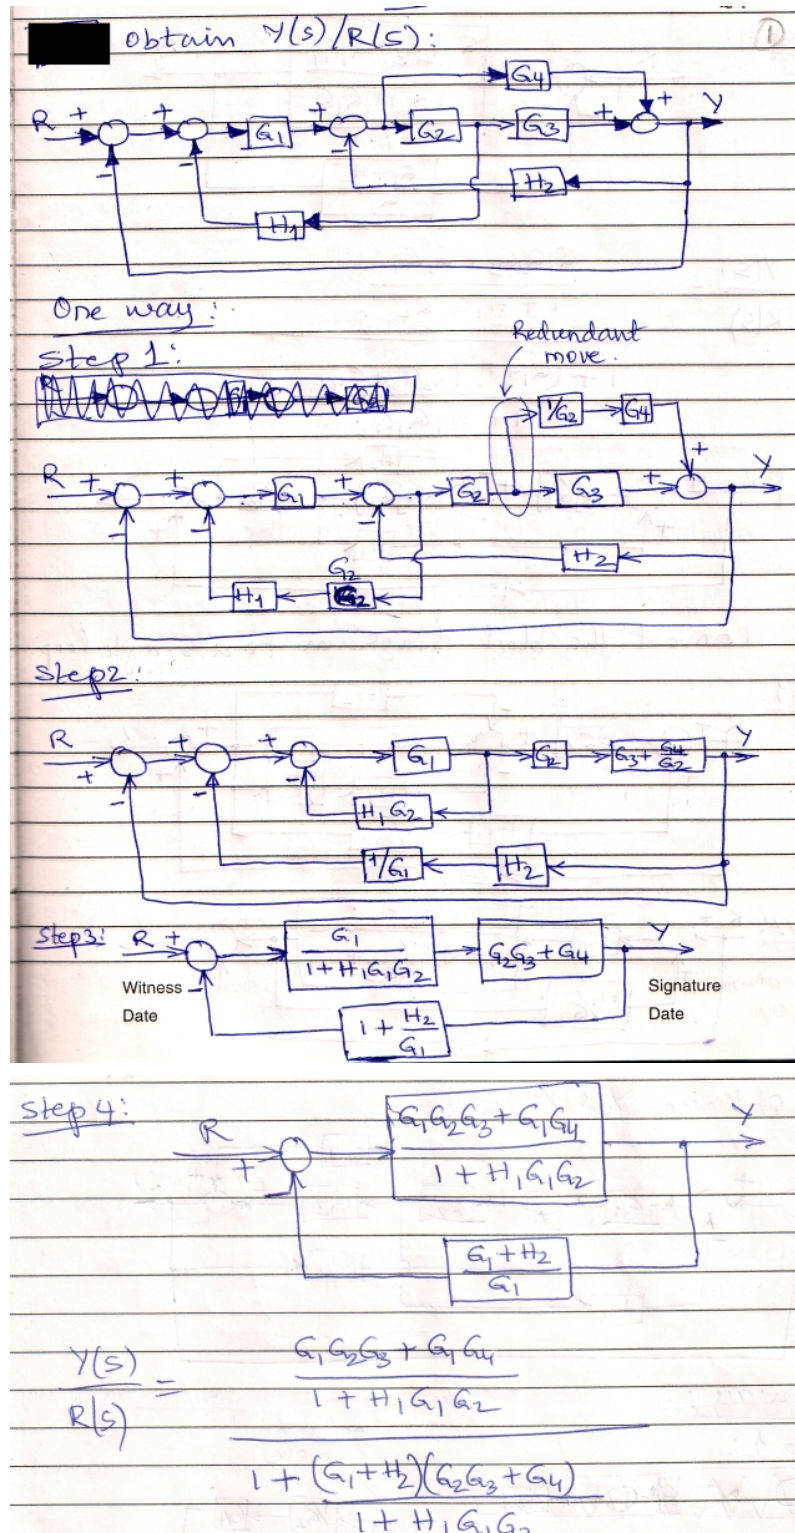 Obtain Y(s)/R(s): 1
G4
R + + G1 + G2 G3 + + Y
- - -
H2
H1
One way:
Redundant move.
Step 1:
1/G2 G4
R + + G1 + G2 G3 + + Y
- - -
H2
G2
H1
Step2:
R + + + G1 G2 G3 + G4/G2 Y
- - -
H1 G2
1/G1 H2
Step3: R + G1/(1+H1G1G2) G2G3+G4 Y
Witness - Signature
Date Date
1 + H2/G1
Step 4:
R + (G1G2G3 + G1G4)/(1 + H1G1G2) Y
-
(G1 + H2)/G1
Y(s)/R(s) =
G1G2G3 + G1G4
1 + H1G1G2
1 + (G1+H2)(G2G3+G4)
1 + H1G1G2